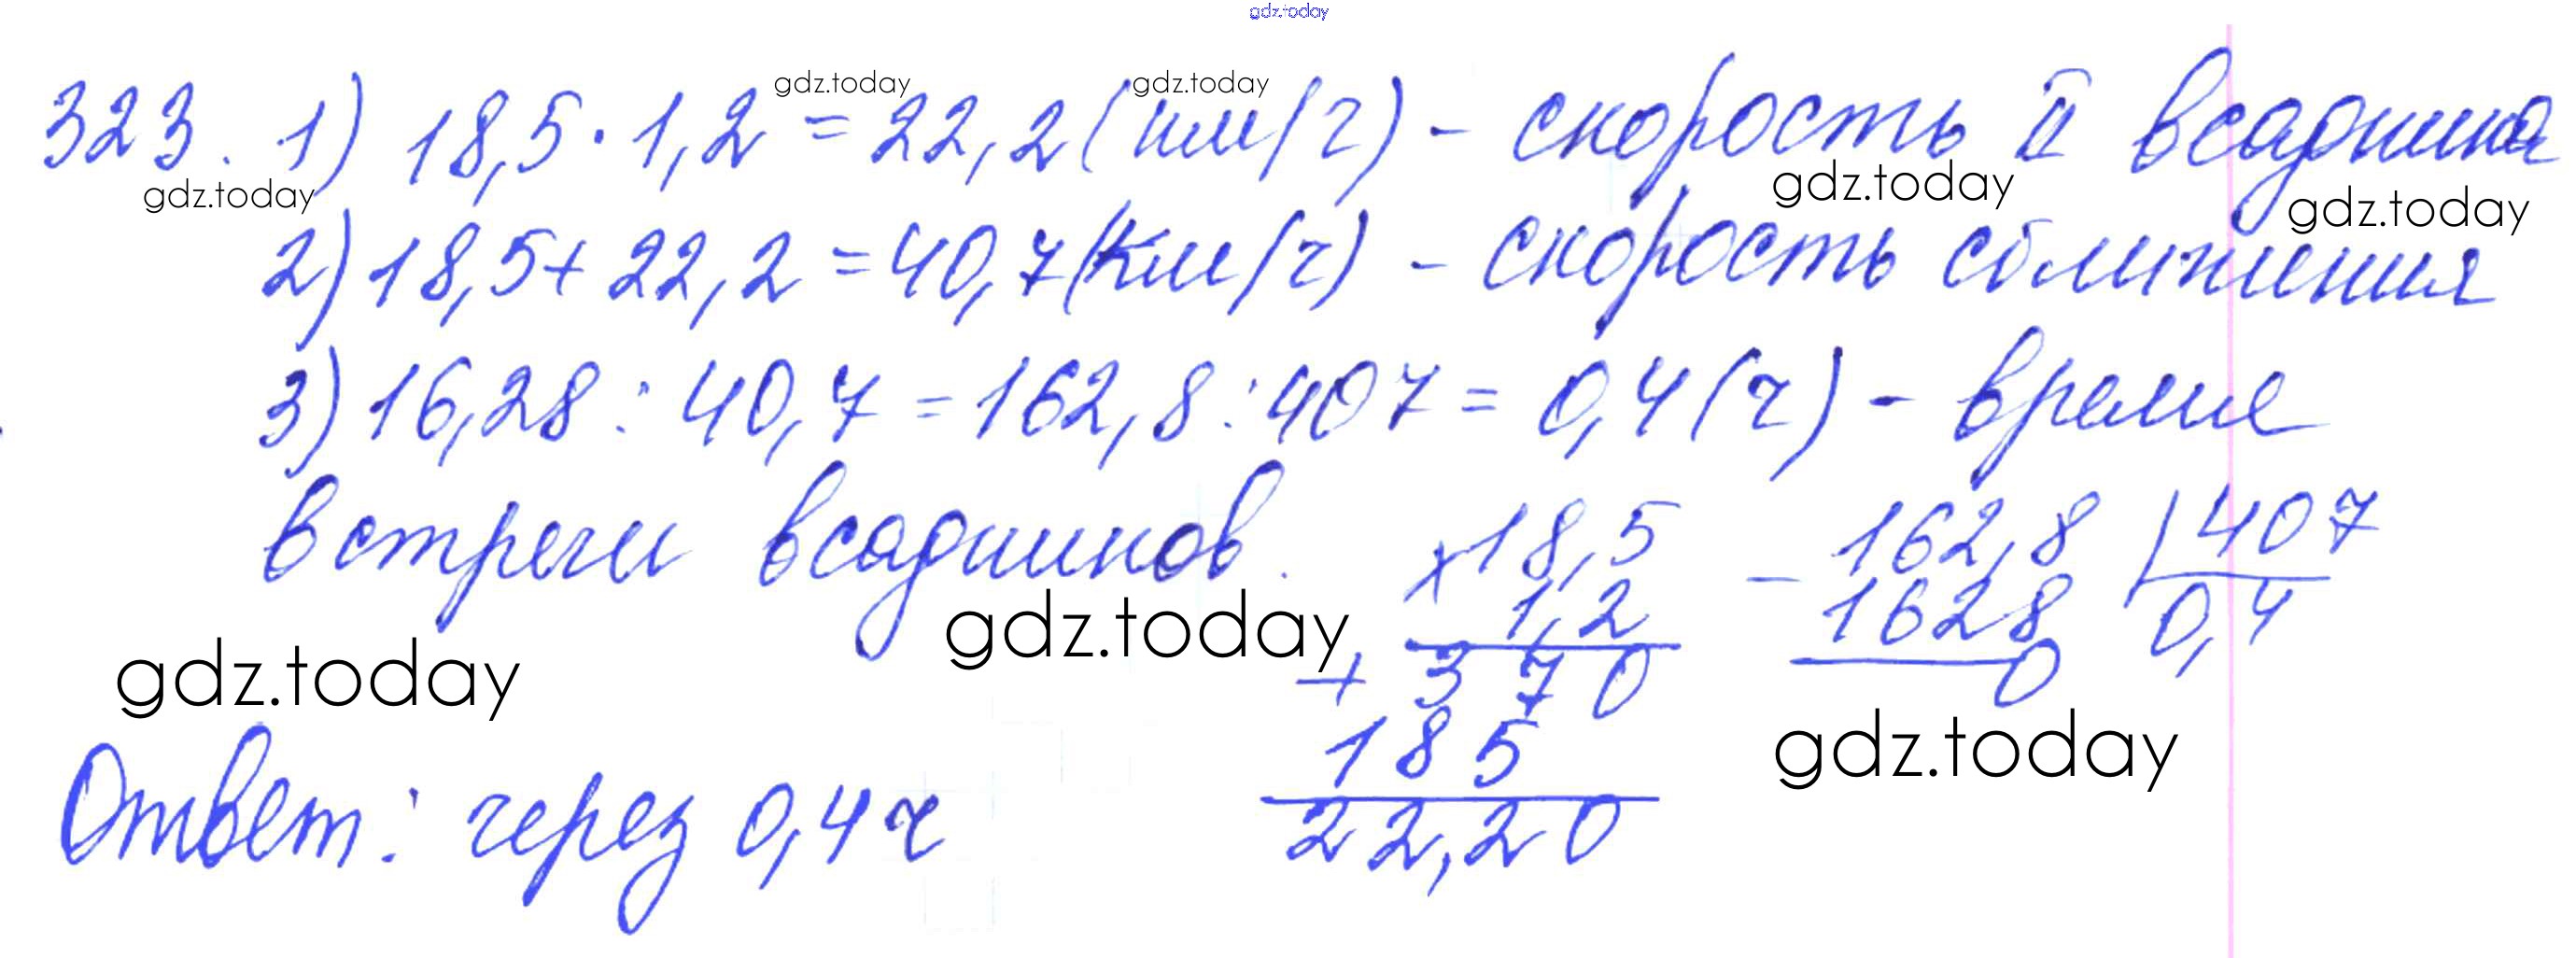 gdz.today
323. 1) 18,5 · 1,2 = 22,2 (км/ч) - скорость II всадника
gdz.today gdz.today
gdz.today gdz.today gdz.today
2) 18,5 + 22,2 = 40,7 (км/ч) - скорость сближения
3) 16,28 : 40,7 = 162,8 : 407 = 0,4 (ч) - время
встречи всадников.
× 18,5
1,2
+ 370
185
22,20
- 162,8 | 407
1628 0,4
0
gdz.today gdz.today
gdz.today
Ответ: через 0,4 ч